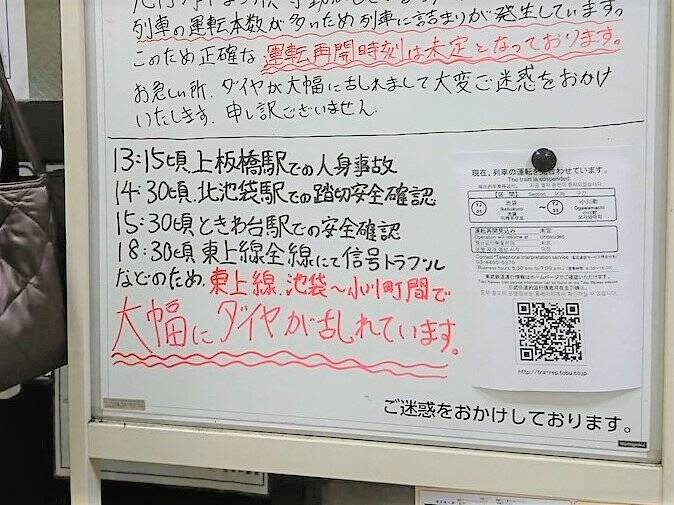 列車の運転本数が多いため列車に詰まりが発生しています。
このため正確な運転再開時刻は未定となっております。
お急ぎの所、ダイヤが大幅に乱れまして大変ご迷惑をおかけ
いたします。申し訳ございません。
13:15頃 上板橋駅での人身事故
14:30頃 北池袋駅での踏切安全確認
15:30頃 ときわ台駅での安全確認
18:30頃 東上線全線にて信号トラブル
などのため、東上線 池袋〜小川町間で
大幅にダイヤが乱れています。
現在、列車の運転を見合わせています。
The train is suspended.
【区間】 Section
池袋
Ikebukuro
〜
小川町
Ogawamachi
運転再開見込み 未定
Operation will resume at
Contact "Telephone interpretation service"
03-4455-5370
東武鉄道運行情報はホームページでご確認いただけます。
http://tra-rep.tobu.co.jp
ご迷惑をおかけしております。